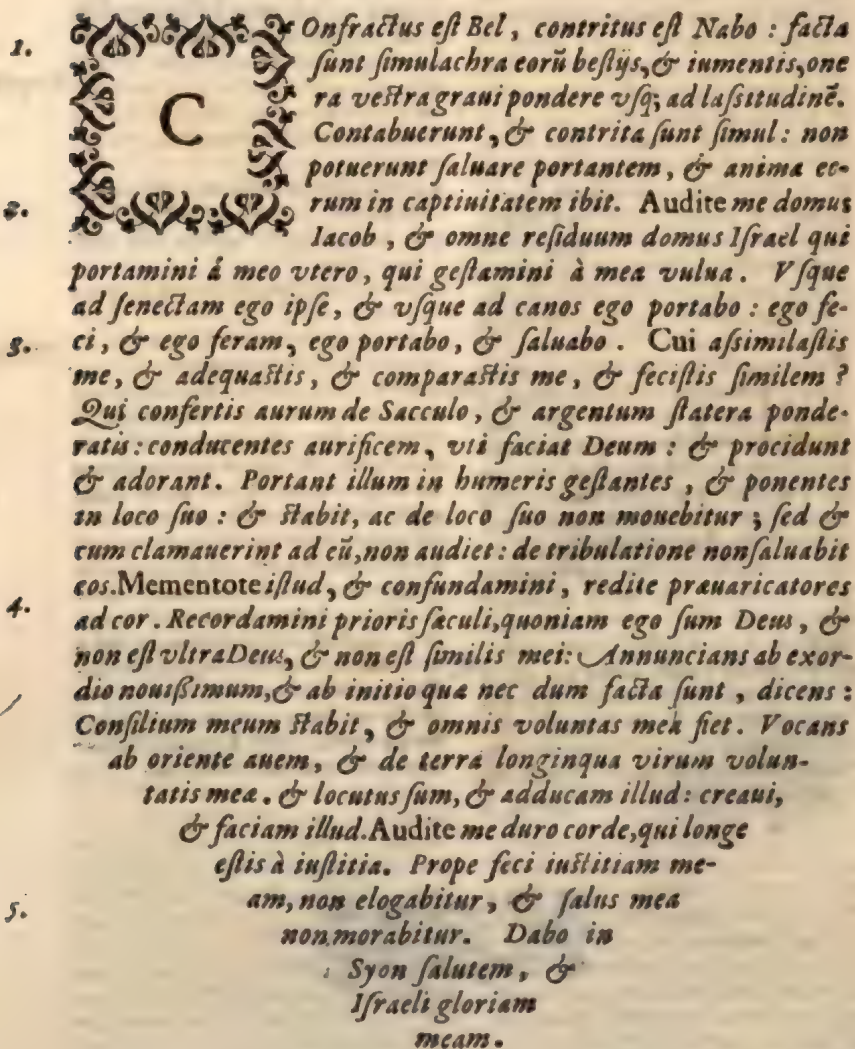 1. COnfractus eſt Bel, contritus eſt Nabo : facta
ſunt ſimulachra eorũ beſtijs, & iumentis, one
ra veſtra graui pondere vſq; ad laſsitudinẽ.
Contabuerunt, & contrita ſunt ſimul: non
potuerunt ſaluare portantem, & anima eo-
2. rum in captiuitatem ibit. Audite me domus
Iacob, & omne reſiduum domus Iſrael qui
portamini á meo vtero, qui geſtamini à mea vulua. Vſque
ad ſenectam ego ipſe, & vſque ad canos ego portabo : ego fe-
3. ci, & ego feram, ego portabo, & ſaluabo. Cui aſsimilaſtis
me, & adequaſtis, & comparaſtis me, & feciſtis ſimilem ?
Qui confertis aurum de Sacculo, & argentum ſtatera ponde-
ratis: conducentes aurificem, vti faciat Deum : & procidunt
& adorant. Portant illum in humeris geſtantes, & ponentes
in loco ſuo : & ſtabit, ac de loco ſuo non mouebitur ; ſed &
cum clamauerint ad eũ, non audiet : de tribulatione non ſaluabit
eos. Mementote iſtud, & confundamini, redite præuaricatores
4. ad cor. Recordamini prioris ſæculi, quoniam ego ſum Deus, &
non eſt vltra Deus, & non eſt ſimilis mei: Annuncians ab exor-
dio nouiſsimum, & ab initio quæ nec dum facta ſunt, dicens :
Conſilium meum ſtabit, & omnis voluntas mea fiet. Vocans
ab oriente auem, & de terra longinqua virum volun-
tatis meæ. & locutus ſum, & adducam illud: creaui,
& faciam illud. Audite me duro corde, qui longe
eſtis à iuſtitia. Prope feci iuſtitiam me-
5. am, non elogabitur, & ſalus mea
non morabitur. Dabo in
Syon ſalutem, &
Iſraeli gloriam
meam.